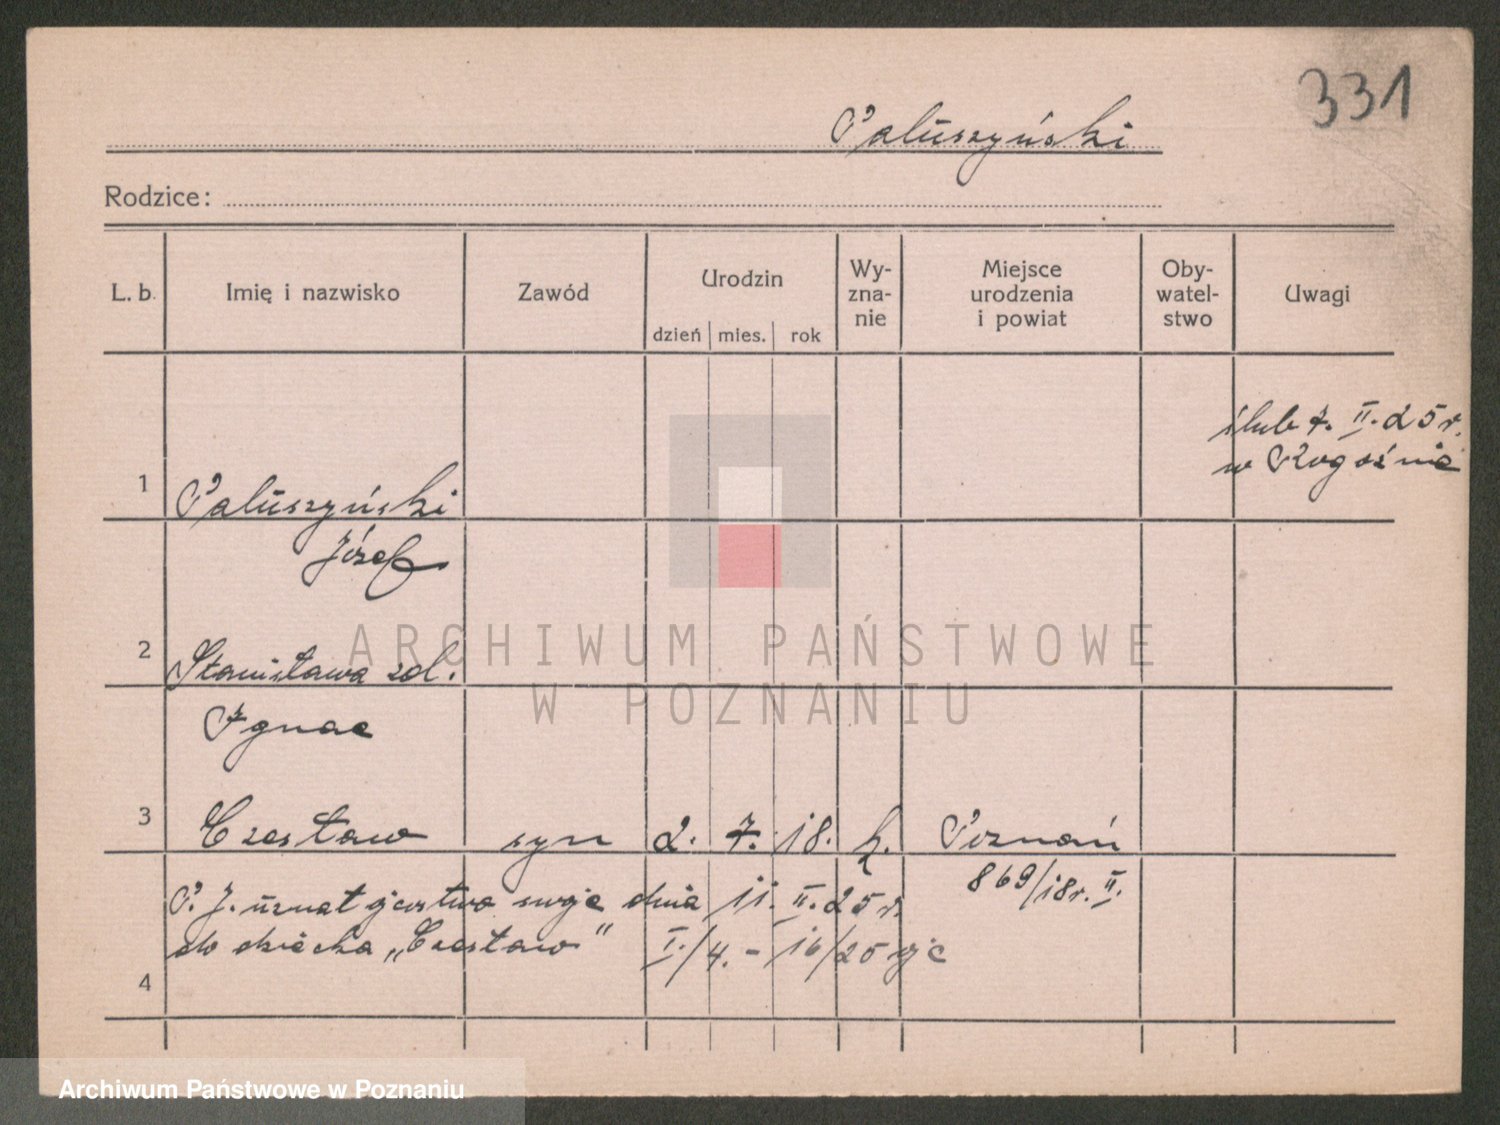 331
Paluszyński
Rodzice:
L. b. Imię i nazwisko Zawód Urodzin dzień mies. rok Wy-zna-nie Miejsce urodzenia i powiat Oby-watel-stwo Uwagi
ślub 7. II. 25 r.
w Rogoźnie
1 Paluszyński
Józef
2 Stanisława zd.
Ignac
3 Czesław syn 2. 7. 18. k. Poznań
869/18 r. II.
P. J. uznał ojcostwo swoje dnia 11. II. 25 r.
do dziecka „Czesław" I./4. - 16/25
4
ARCHIWUM PAŃSTWOWE
W POZNANIU
Archiwum Państwowe w Poznaniu